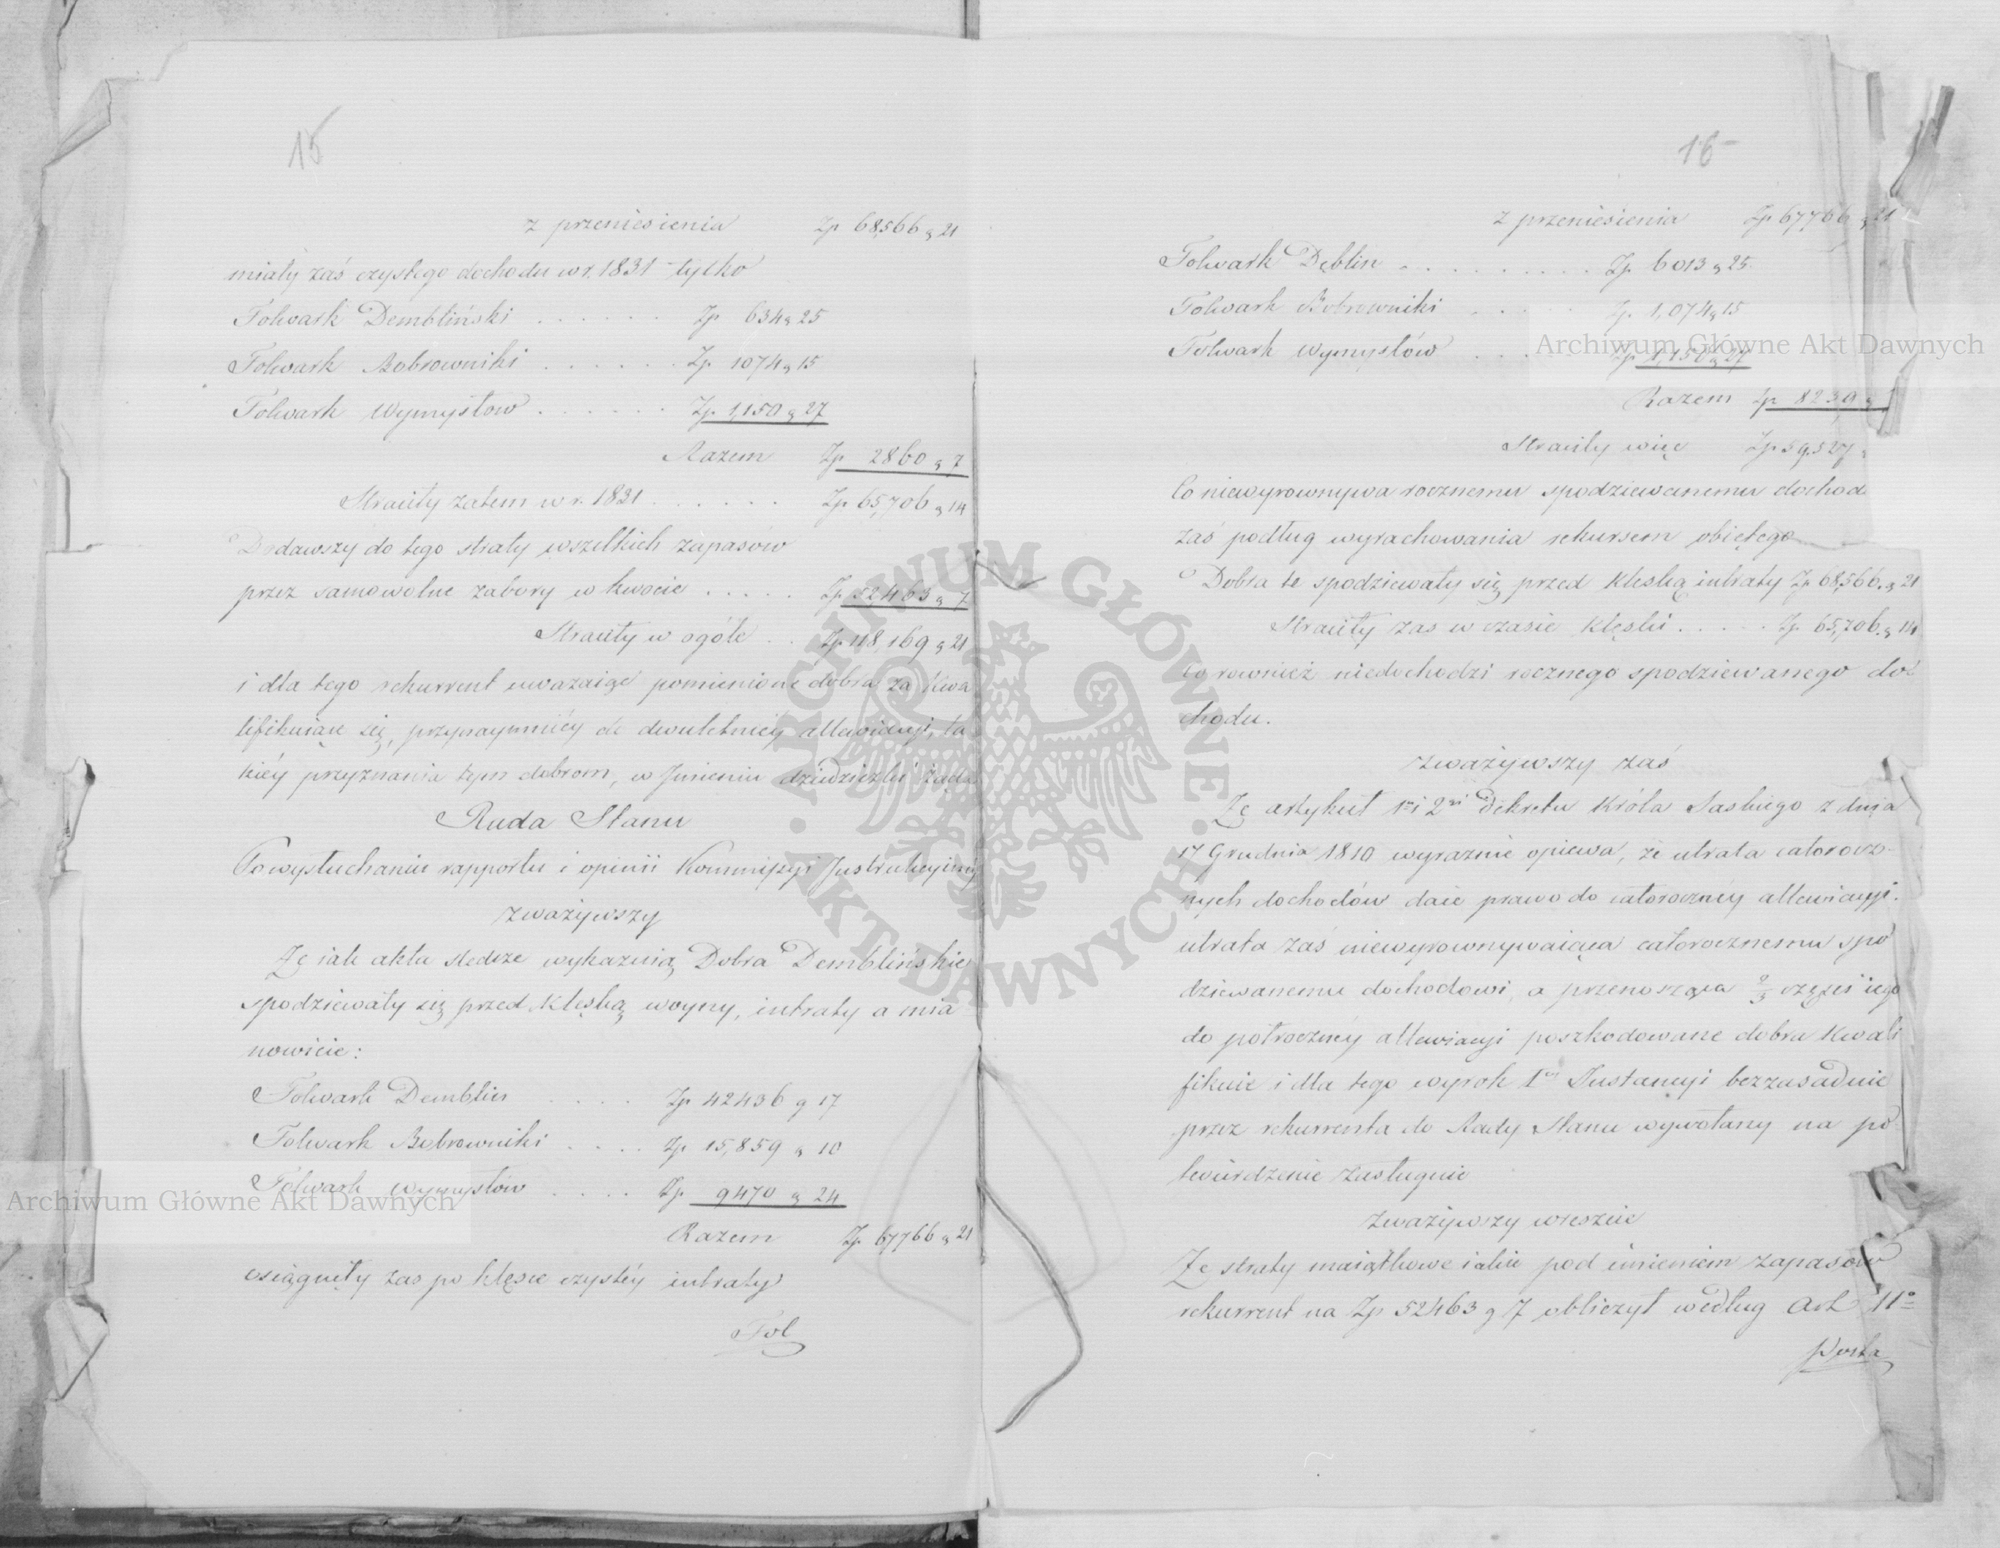 15
z przeniesienia Zp 68,566 g 21
miały zaś czystego dochodu w r. 1831 tylko
Folwark Dembliński . . . . . . Zp 634 g 25
Folwark Bobrowniki . . . . . . Zp 1074 g 15
Folwark Wymysłow . . . . . . Zp 1,150 g 27
Razem Zp 2860 g 7
Straciły zatem w r. 1831 . . . . . . Zp 65,706 g 14
Dodawszy do tego straty wszelkich zapasow
przez samowolne zabory w kwocie . . . . . Zp 52,463 g 7
Straciły w ogóle . . Zp 118,169 g 21
i dla tego rekurrent uwazaiąc pomienione dobra za kwa
lifikuiące się, przynaymniéy do dwuletniéy allewiacyi, ta
kiéy przyznania tym dobrom, w Jmieniu dziedziczki żąda
Rada Stanu
Po wysłuchaniu rapportu i opinii Kommissyi Jnstrukcyinéy
zważywszy
Że iak akta śledcze wykazuią Dobra Demblińskie
spodziewały się przed klęską woyny, intraty a mia
nowicie:
Folwark Demblin . . . . Zp 42436 g 17
Folwark Bobrowniki . . . . Zp 15,859 g 10
Folwark Wymysłów . . . . Zp 9470 g 24
Razem Zp 67766 g 21
osiągnęły zas po klęsce czystéy intraty
Fol
16
z przeniesienia Zp 67766 g 21
Folwark Dęblin . . . . . . . . . Zp 6013 g 25
Folwark Bobrowniki . . . . . Zp 1,074 g 15
Folwark Wymysłów . . . . Zp 1,150 g 27
Razem Zp 8239 g
Straciły więc Zp 59527 g
Co niewyrownywa rocznemu spodziewanemu dochod
zaś podług wyrachowania rekursem obiętego
Dobra te spodziewały się przed klęską intraty Zp 68,566 g 21
Straciły zas w czasie klęski . . . . Zp 65,706 g 14
Co rownież niedochodzi rocznego spodziewanego do
chodu.
zważywszy zaś
Że artykuł 1szy i 2gi Dekretu Króla Saskiego z dnia
17 Grudnia 1810 wyraznie opiewa, że utrata całorocz
nych dochodów daie prawo do całorocznéy allewiacyi.
utrata zaś niewyrownywaiąca całorocznemu spo
dziewanemu dochodowi, a przenosząca 2/3 części iego
do półrocznéy allewiacyi poszkodowane dobra kwali
fikuie i dla tego wyrok 1éy Jnstancyi bezzasadnie
przez rekurrenta do Rady Stanu wywołany na po
twierdzenie zasługuie
zważywszy wreszcie
Że straty maiątkowe iakie pod imieniem zapasow
rekurrent na Zp 52463 g 7 obliczył według Art 11o
Posta
Archiwum Główne Akt Dawnych
Archiwum Główne Akt Dawnych
ARCHIWUM GŁÓWNE AKT DAWNYCH